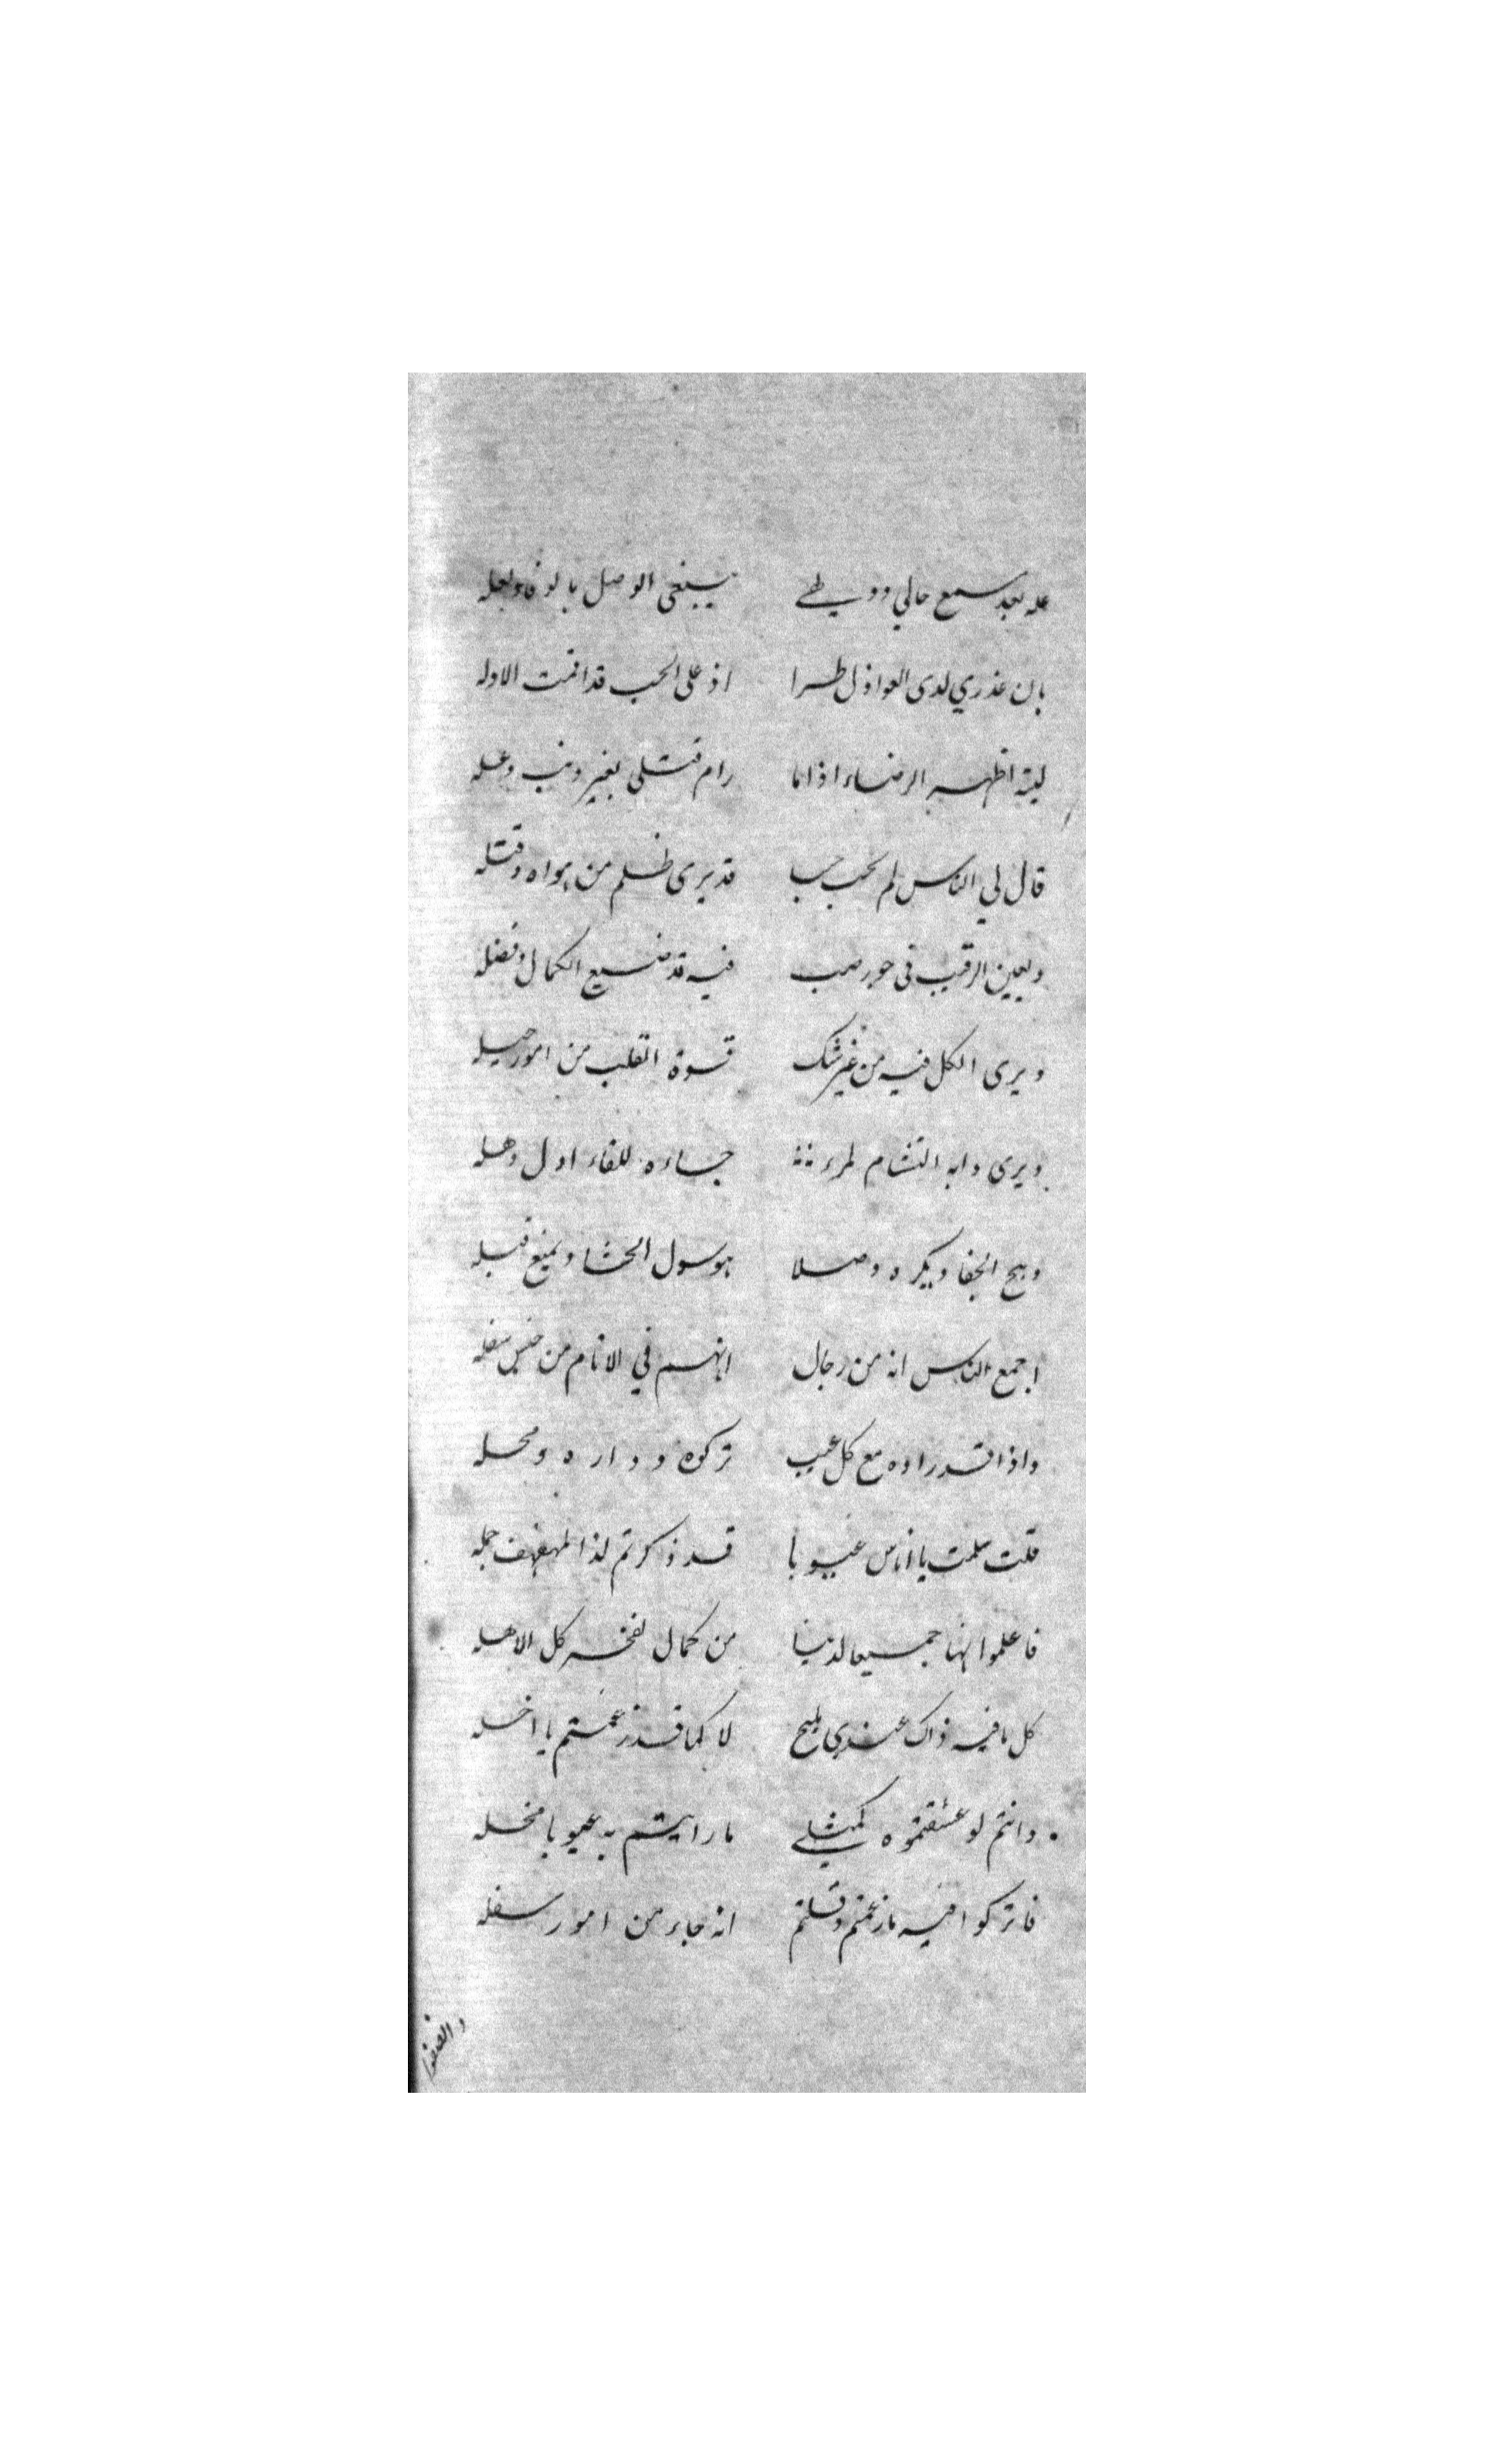 عله بعد سمع حالي يبتغى الوصل بالوفا ولعله
بان عذري لدى العواذل طرا اذ على الحب قد اقمت الادله
ليته اظهر الرضاء اذا ما رام قتلى بغير ذنب وعله
قال لي الناس لم تحب حبيبا قد يرى ظلم من يهواه وقتله
وبعين الرقيب في جور صب فيه قد ضيع الكمال وفضله
ويرى الكل فيه من غير شك قسوة القلب من امور جبله
ويرى دابه التشام لمرء جاءه للقاء اول وهله
الجفا ويكره وصلا بوسول الحشا ويمنع قبله
اجمع الناس انه من رجال انهم في الانام من جنس سفله
واذا قد راوه مع كل عيب تركوه وداره ومحله
قلت سلمت يا اناس عيوبا قد ذكرتم لذا المهفهف جمله
فاعلموا انها جميعا لدينا من كمال لفخر كل الاهله
كل ما فيه ذاك عندي مليح لا كما قد زعمتم يا اخله
وانتم لو عشقتموه كمثلي ما رايتم به عيوبا مخله
فاتركوا فيه ما زعمتم وقلتم انه جاء من امور سفله